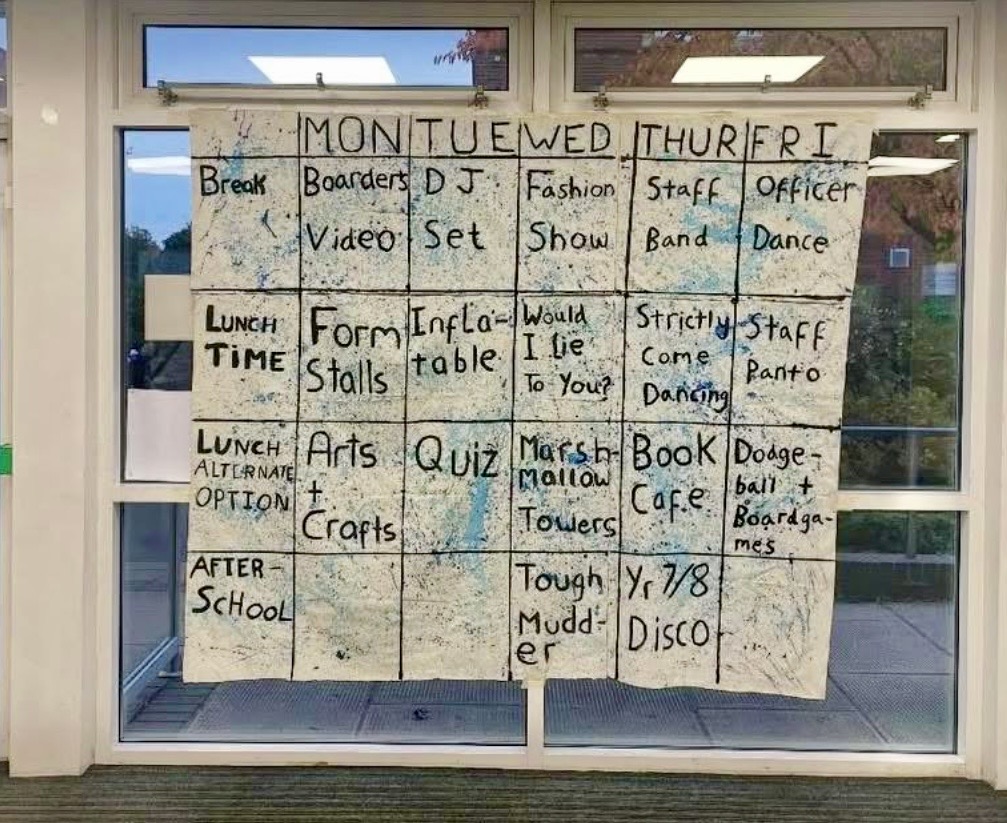 MON TUE WED THUR FRI
Break
Boarders
Video
DJ
Set
Fashion
Show
Staff
Band
Officer
Dance
LUNCH
TiME
Form
Stalls
InfLa-
table
Would
I lie
To You?
Strictly
come
Dancing
Staff
Panto
LUNCH
ALTERNATE
OPTION
Arts
+
Crafts
Quiz
Marsh-
mallow
Towers
BooK
Cafe
Dodge-
ball +
Boardga-
mes
AFTER-
ScHOOL
Tough
Mudd-
er
Yr 7/8
Disco